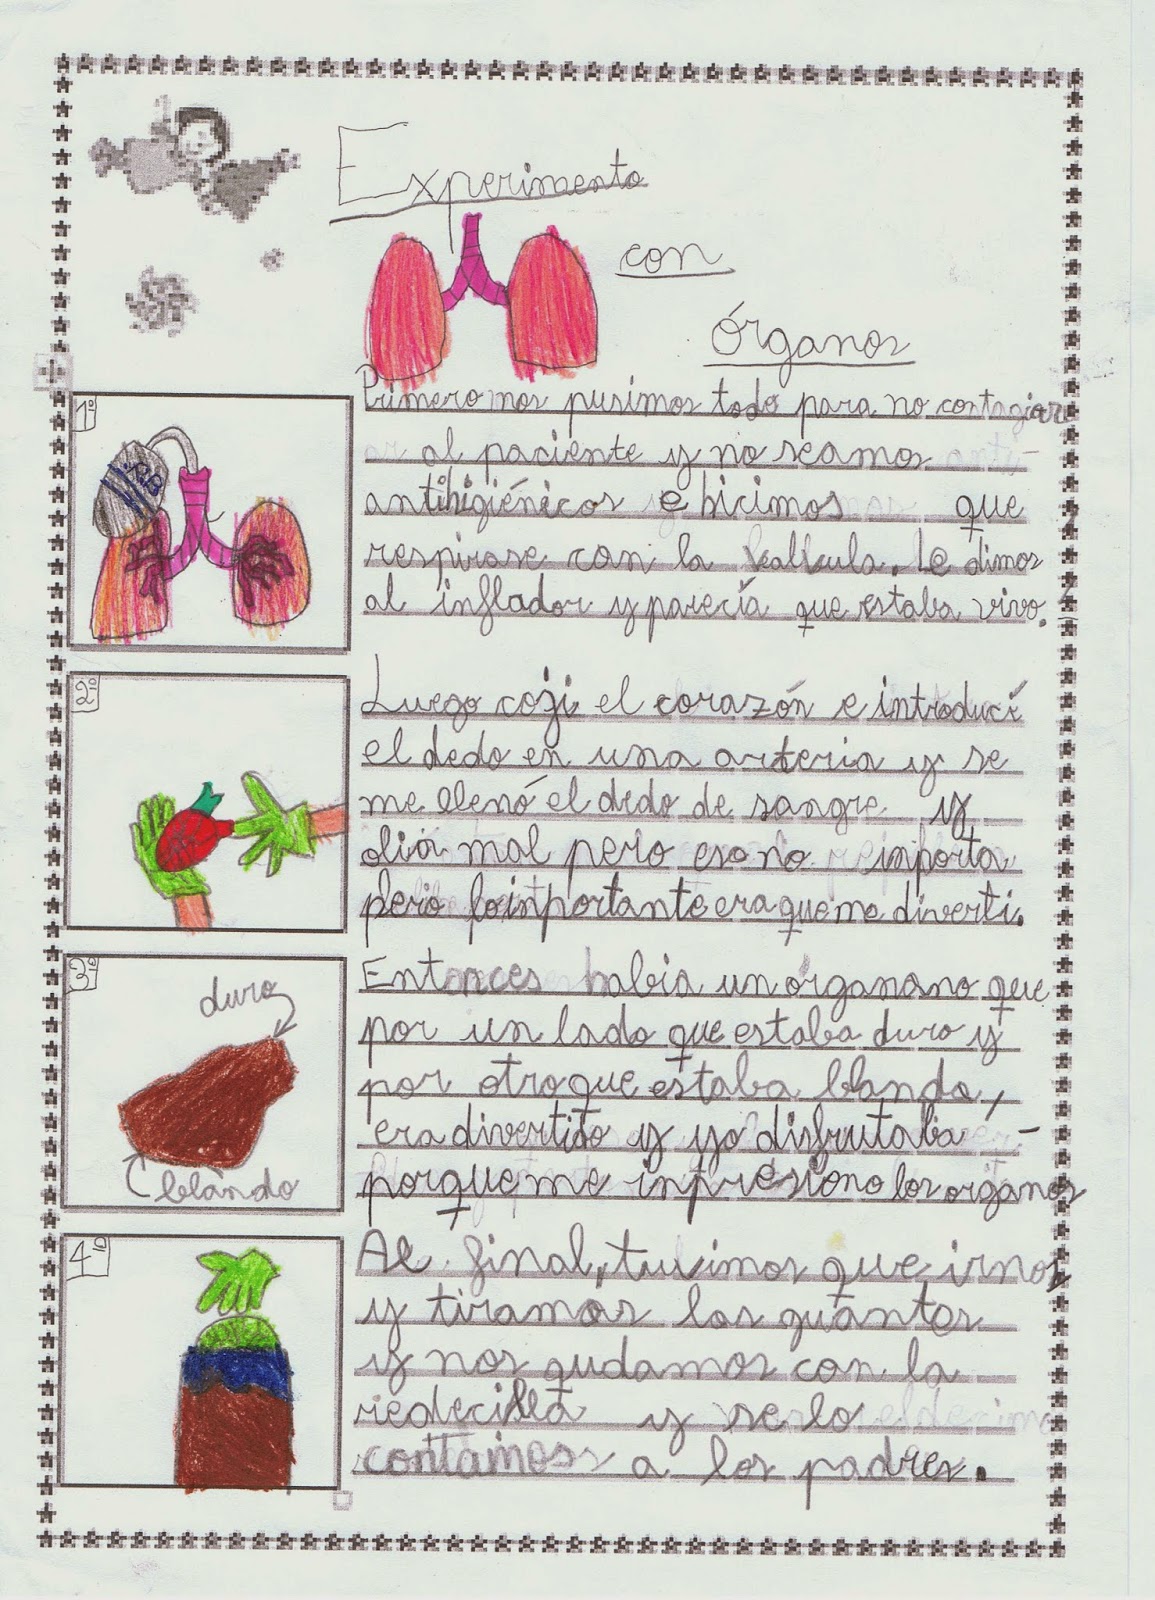 Experimento
con
Órganos
1º
Primero nos pusimos todo para no contagiar
al paciente y no seamos
antihigiénicos e hicimos que
respirase con la kalkula. Le dimos
al inflador y parecía que estaba vivo.
2º
Luego coji el corazón e introducí
el dedo en una arteria y se
me llenó el dedo de sangre y
olía mal pero eso no inporta
pero lo inportante era que me diverti.
3º
duro
blando
Entonces habia un órganano que
por un lado que estaba duro y
por otro que estaba blando,
era divertido y yo disfrutaba
porque me inpresiono los organos
4º
Al final, tuvimos que irnos,
y tiramos los guantes
y nos qudamos con la
redecilla y se lo
contamos a los padres.